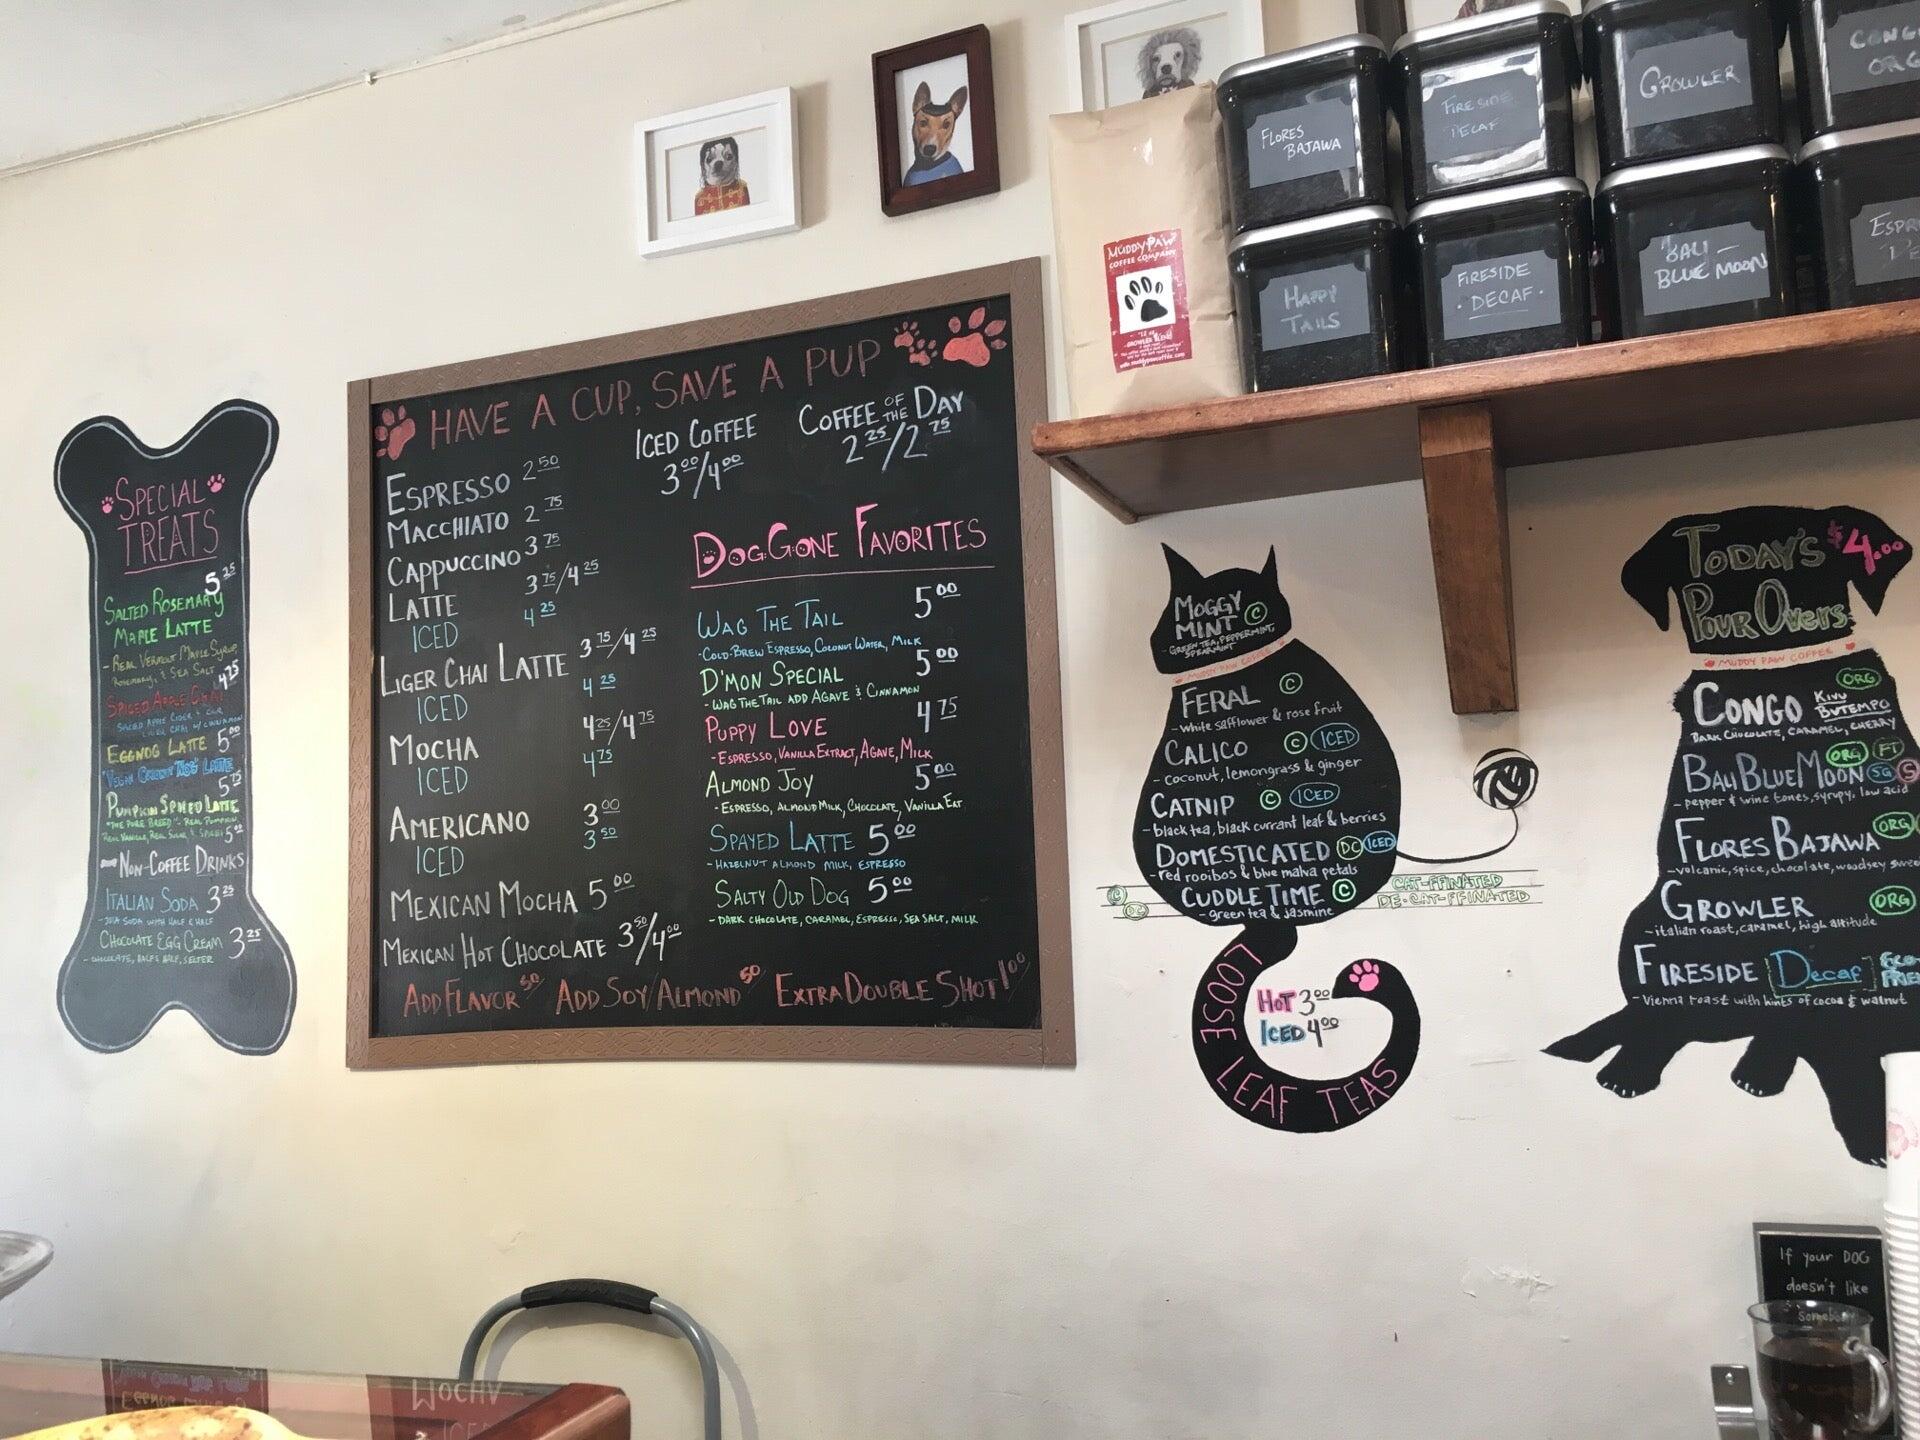 SPECIAL
TREATS
5 25
SALTED ROSEMARY
MAPLE LATTE
- REAL VERMONT MAPLE SYRUP,
ROSEMARY, & SEA SALT
4 75
SPICED APPLE CHAI
SPICED APPLE CIDER +
LIGER CHAI W/ CINNAMON
EGGNOG LATTE 5 00
LATTE
5 75
PUMPKIN SPICED LATTE
"THE PURE BREED" - REAL PUMPKIN,
REAL VANILLA, REAL SUGAR & SPICES
NON-COFFEE DRINKS
ITALIAN SODA 3 25
SODA WITH HALF & HALF
CHOCOLATE EGG CREAM 3 25
- CHOCOLATE, HALF & HALF, SELTZER
HAVE A CUP, SAVE A PUP
ICED COFFEE
3 00/4 00
COFFEE OF THE DAY
2 25/2 75
ESPRESSO 2 50
MACCHIATO 2 75
CAPPUCCINO 3 75
LATTE 3 75/4 25
ICED 4 25
LIGER CHAI LATTE 3 75/4 25
ICED 4 25
MOCHA 4 25/4 75
ICED 4 75
AMERICANO 3 00
ICED 3 50
MEXICAN MOCHA 5 00
MEXICAN HOT CHOCOLATE 3 50/4 00
DOG-GONE FAVORITES
WAG THE TAIL 5 00
- COLD-BREW ESPRESSO, COCONUT WATER, MILK
D'MON SPECIAL 5 00
- WAG THE TAIL ADD AGAVE & CINNAMON
PUPPY LOVE 4 75
- ESPRESSO, VANILLA EXTRACT, AGAVE, MILK
ALMOND JOY 5 00
- ESPRESSO, ALMOND MILK, CHOCOLATE, VANILLA EXT
SPAYED LATTE 5 00
- HAZELNUT ALMOND MILK, ESPRESSO
SALTY OLD DOG 5 00
- DARK CHOCOLATE, CARAMEL, ESPRESSO, SEA SALT, MILK
ADD FLAVOR 50 ADD SOY/ALMOND 50 EXTRA DOUBLE SHOT 1 00
MUDDY PAW
COFFEE COMPANY
12 oz
GROWLER BLEND
FLORES
BAJAWA
FIRESIDE
DECAF
GROWLER
HAPPY
TAILS
FIRESIDE
· DECAF ·
BALI -
BLUE MOON
MOGGY
MINT C
- GREEN TEA, PEPPERMINT,
SPEARMINT
MUDDY PAW COFFEE
FERAL C
- white safflower & rose fruit
CALICO C ICED
- coconut, lemongrass & ginger
CATNIP C ICED
- black tea, black currant leaf & berries
DOMESTICATED DC ICED
- red rooibos & blue malva petals
CUDDLE TIME C
- green tea & jasmine
C CAT-FFINATED
DC DE-CAT-FFINATED
LOOSE LEAF TEAS
HOT 3 00
ICED 4 00
TODAY'S $4.00
POUR OVERS
MUDDY PAW COFFEE
ORG
CONGO KIVU
BUTEMPO
DARK CHOCOLATE, CARAMEL, CHERRY
ORG FT
BALI BLUE MOON SG S
- pepper & wine tones, syrupy, low acid
FLORES BAJAWA ORG
- volcanic, spice, chocolate, woodsey
GROWLER ORG
- italian roast, caramel, high altitude
FIRESIDE Decaf ECO-
- Vienna roast with hints of cocoa & walnut
If your DOG
doesn't like
somebody